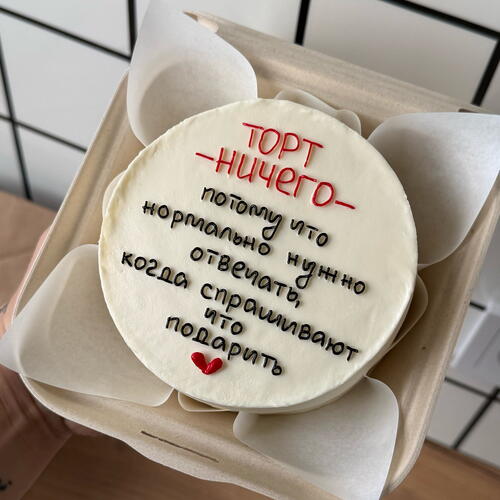 ТОРТ
-НИЧЕГО-
потому что
нормально нужно
отвечать,
когда спрашивают
что
подарить